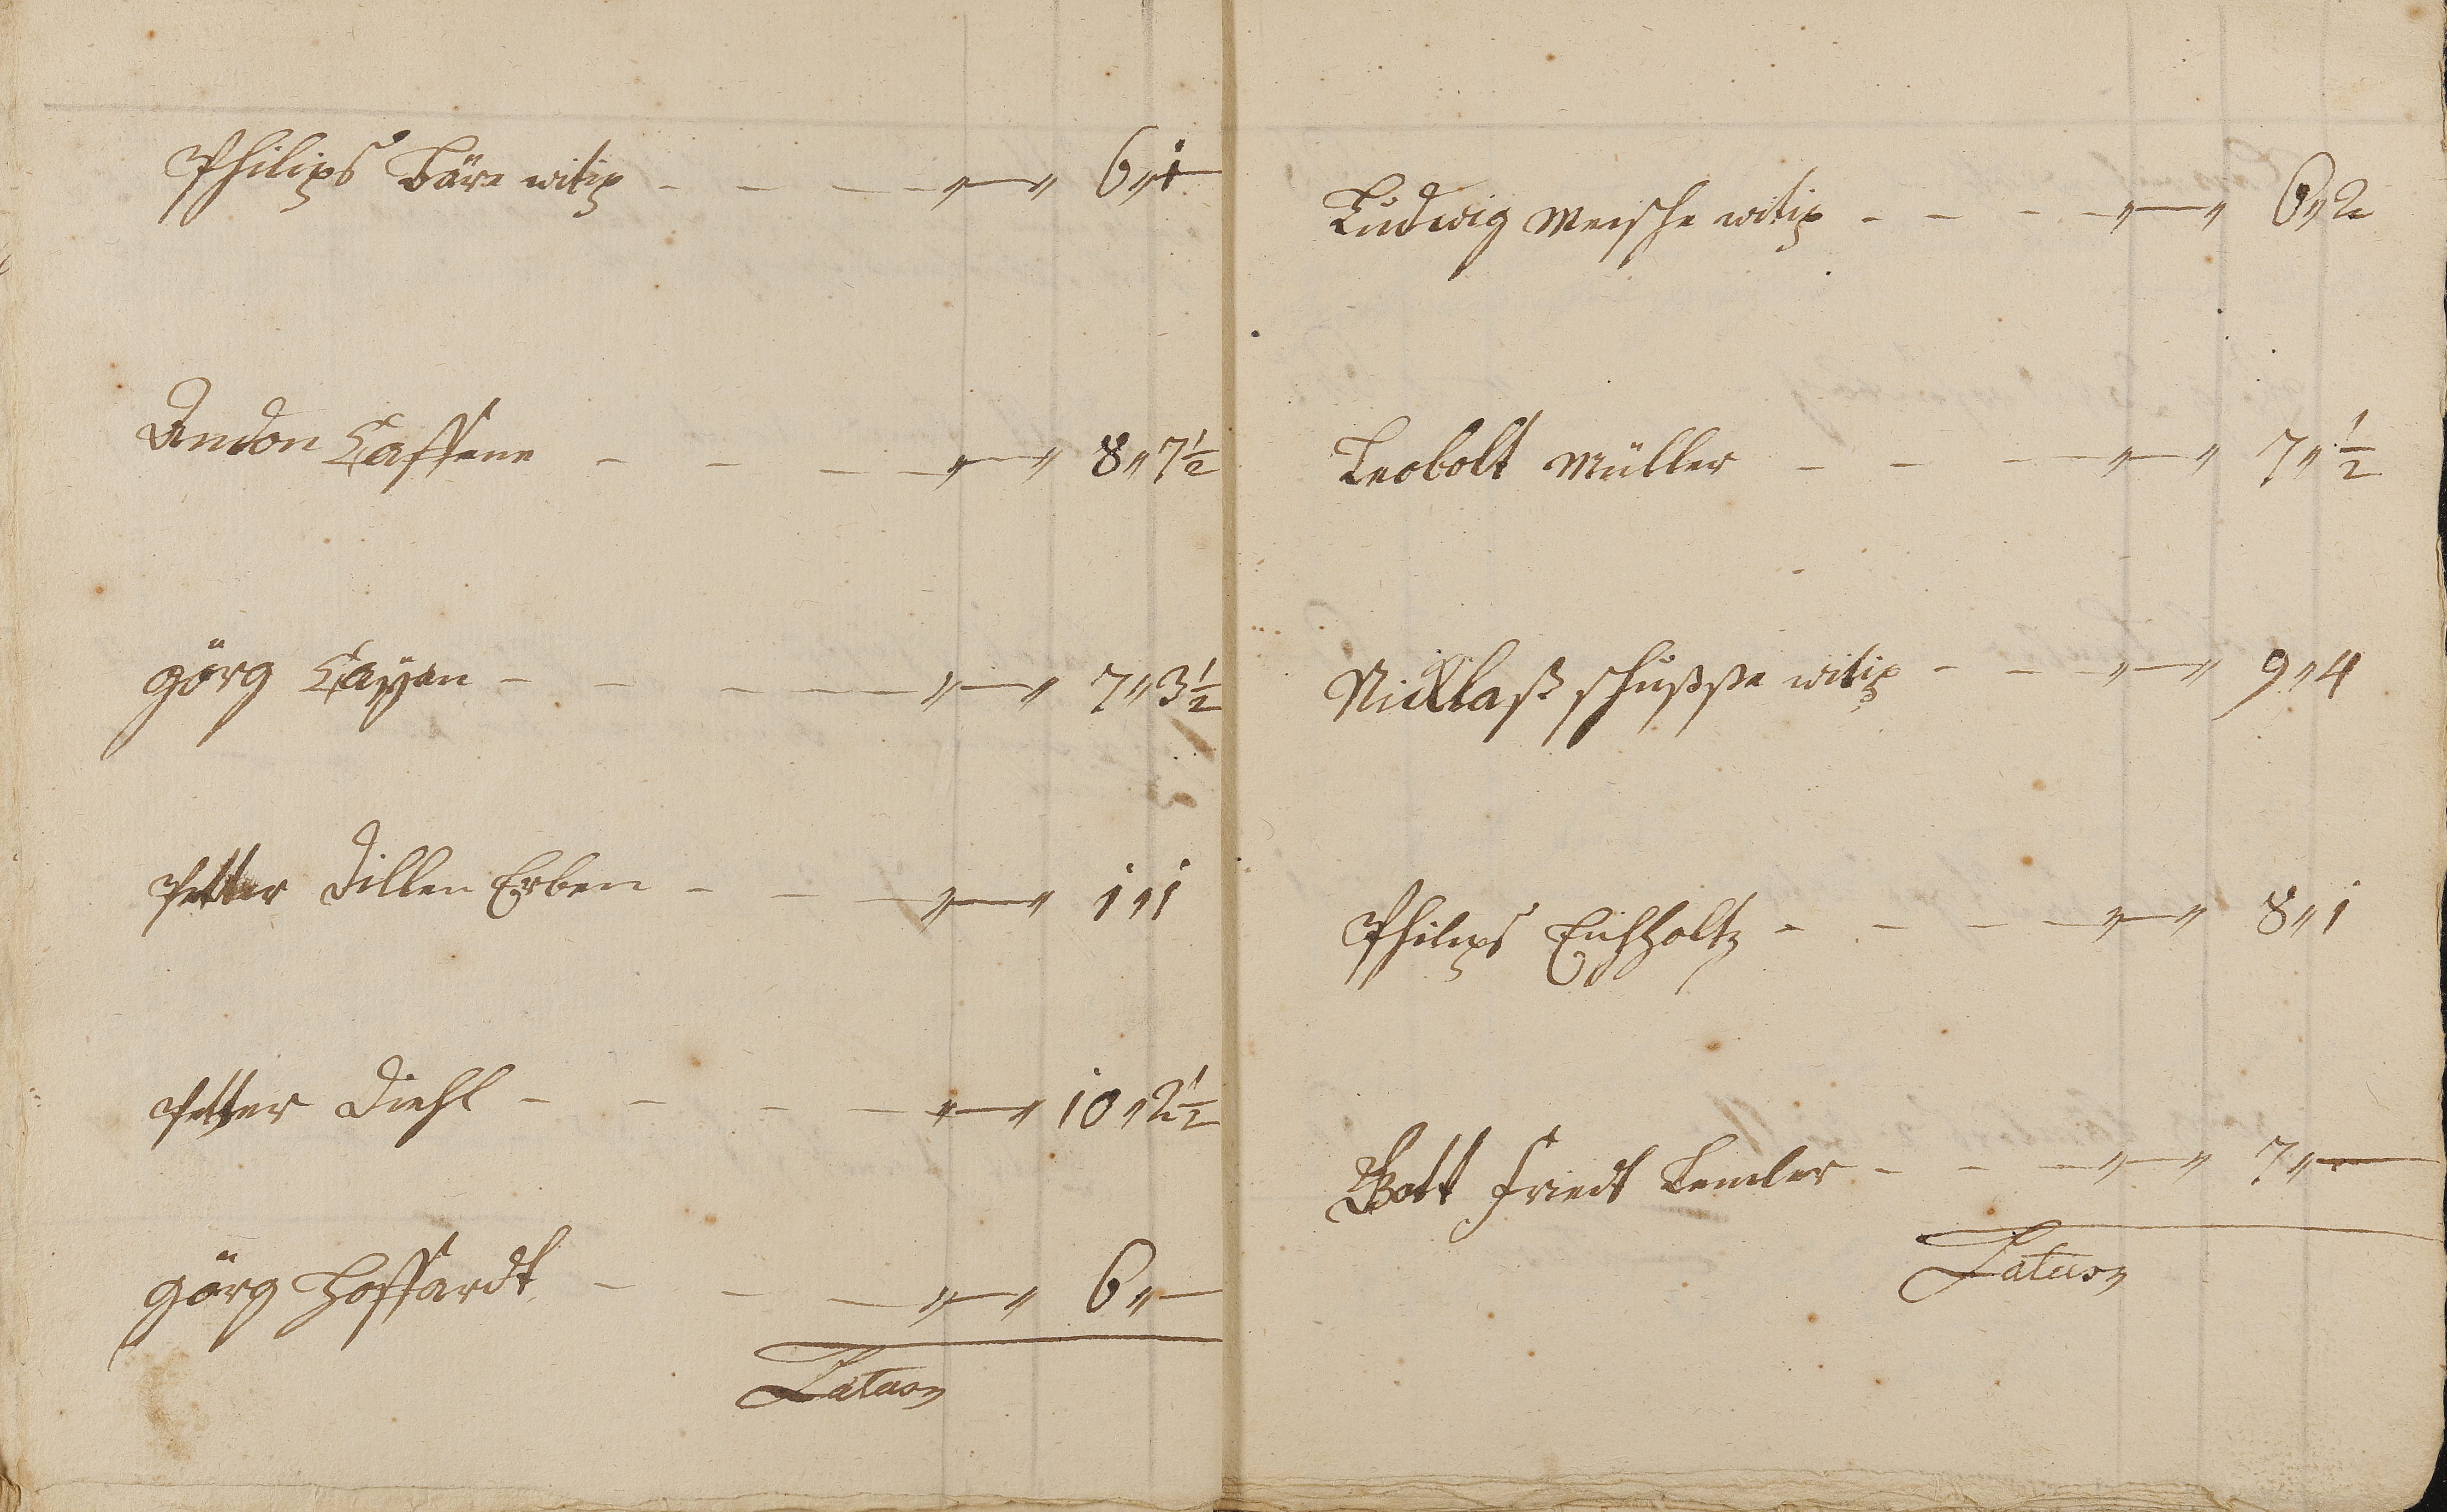 Philips Bäre witip - - - - „ — „ 6 „ 1
Andon Caffene - - - - „ — „ 8 „ 7 ½
görg Cayen - - - - „ — „ 7 „ 3 ½
Petter Dillen Erben - - - „ — „ 1 „ 1
Petter Diehl - - - - „ — „ 10 „ 2 ½
görg Hoffardt - - - „ — „ 6 „ —
Latus
Ludwig Meische witip - - - - „ — „ 6 „ 2
Leobolt Müller - - - „ — „ 7 „ ½
Nicklaß schußße witip - - - „ — „ 9 „ 4
Philips Eichholtz - - - - „ — „ 8 „ 1
Gott friedt Lemler - - - „ — „ 7 „ —
Latus